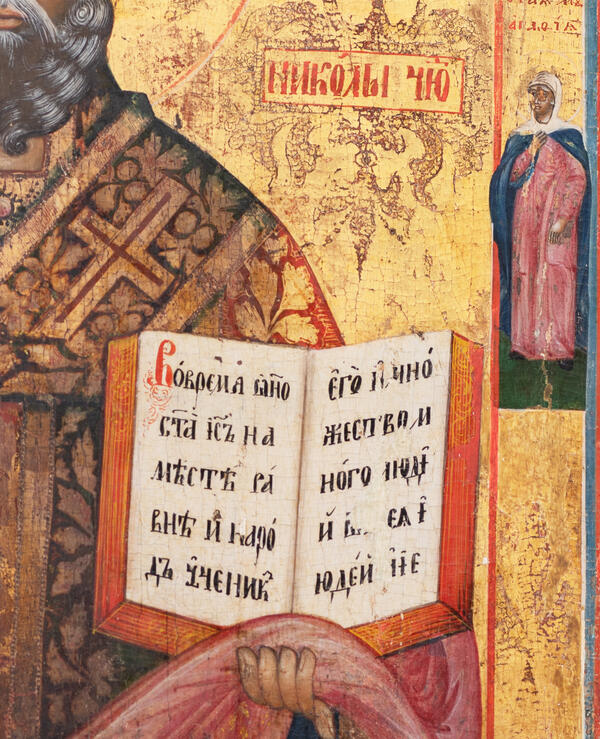 НИКОЛЫ ЧЮ
Во́время ѻ́но
ста̀ іс҃ъ на
мѣстѣ ра́
внѣ и҆ наро́
дъ ᲂу҆ченик
є҆гѡ̀ и҆ мно́
жество м
но́го люді
й
юде́й и҆ є